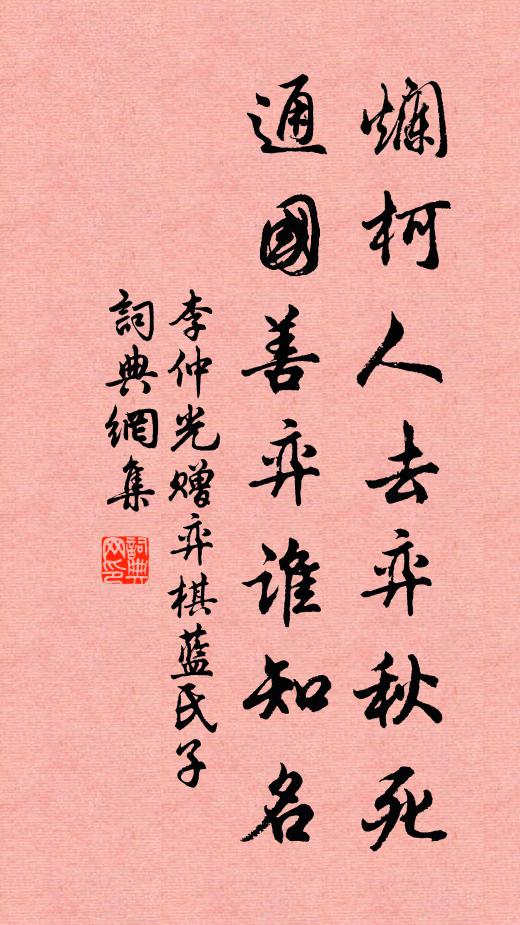 爛柯人去弈秋死
通國善弈誰知名
李仲光贈弈棋藍氏子
詞典網集
詞典网印